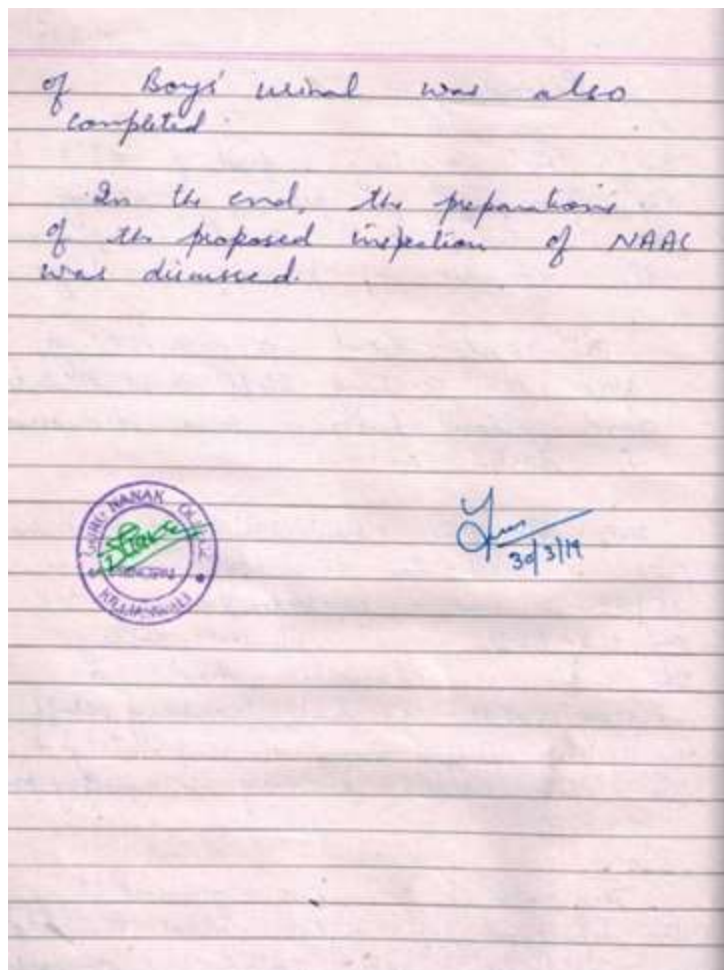 of Boys' urinal was also
completed.
In the end, the preparations
of the proposed inspection of NAAC
was discussed.
GURU NANAK COLLEGE
PRINCIPAL
KILLIANWALI
30/3/19